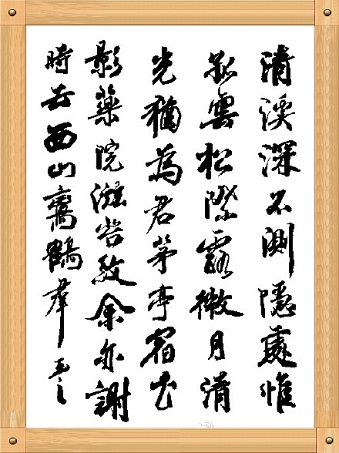 清溪深不測隱處惟
孤雲松際露微月清
光猶為君茅亭宿花
影藥院滋苔紋余亦謝
時去西山鸞鶴羣